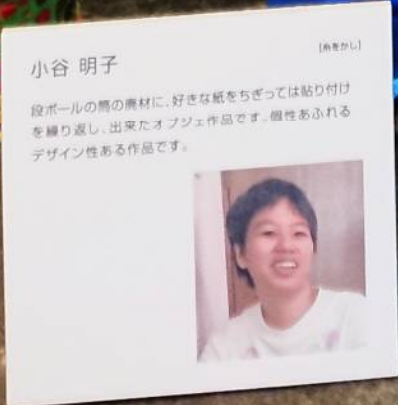 [糸をかし]
小谷 明子
段ボールの筒の廃材に、好きな紙をちぎっては貼り付け
を繰り返し、出来たオブジェ作品です。個性あふれる
デザイン性ある作品です。